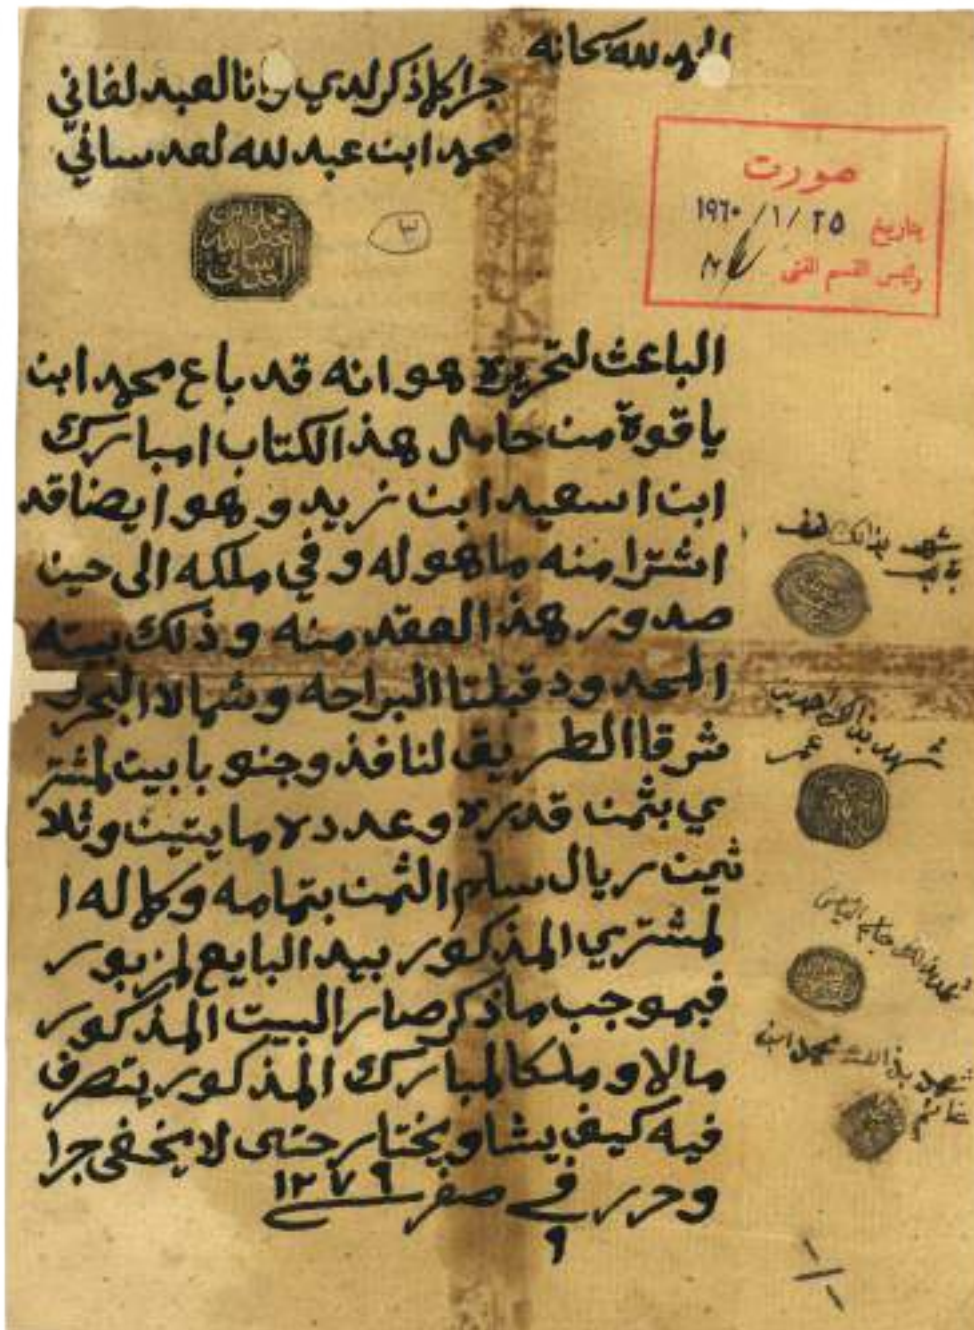 الحمد لله سبحانه
جرا كلما ذكر لدي وانا لعبد لفاني
محمد ابن عبد لله لعدساني
محمد بن
عبد الله
العدساني
٣
صورت
بتاريخ ٢٥ /١/ ١٩٦٠
رئيس القسم الفني
الباعث لتحريره هو انه قد باع محمد ابن
ياقوة من حامل هذ الكتاب امبارك
ابن اسعيد ابن زيد و هو ايضا قد
اشترا منه ما هو له و في ملكه الى حين
صدور هذ العقد منه و ذلك بيته
المحدود قبلتا البراحه و شمالا البحر
شرقا الطريق لنافذ وجنوبا بيت لمشتر
ي بثمن قدره و عدده مايتين و ثلا
ثين ريال سلم الثمن بتمامه وكماله ا
لمشتري المذكور بيد البايع لمزبور
فبموجب ما ذكر صار البيت المذكور
مالا و ملكا لمبارك المذكور يتصرف
فيه كيف يشا و يختار حتى لا يخفى جرا
وحرر في ٩ صفر ١٢٧٩
شهد بذالك
شهد بذالك احمد بن
عمر
شهد بذالك جاسم
شهد بذالك محمد ابن
غانم
١/١